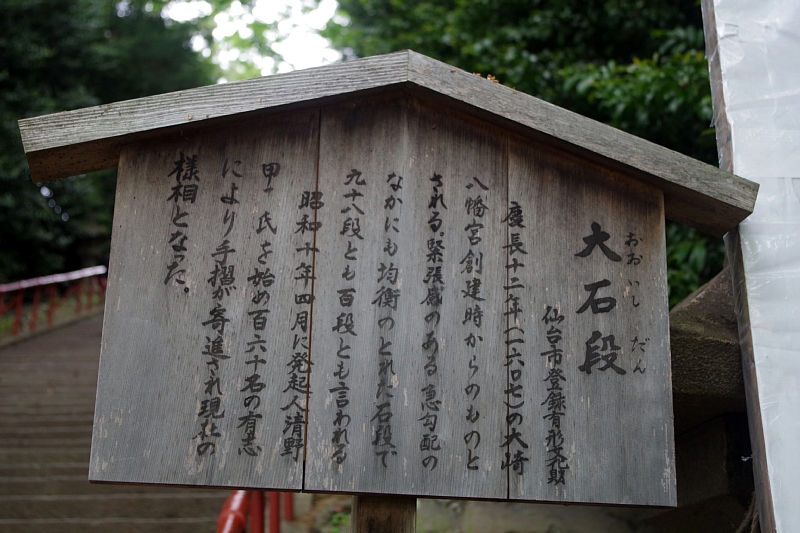 大石段
おお いし だん
仙台市登録有形文化財
慶長十二年（一六〇七）の大崎
八幡宮創建時からのものと
される。緊張感のある急勾配の
なかにも均衡のとれた石段で
九十八段とも百段とも言われる
昭和十年四月に発起人清野
甲子氏を始め百六十名の有志
により手摺が寄進され現在の
様相となった。